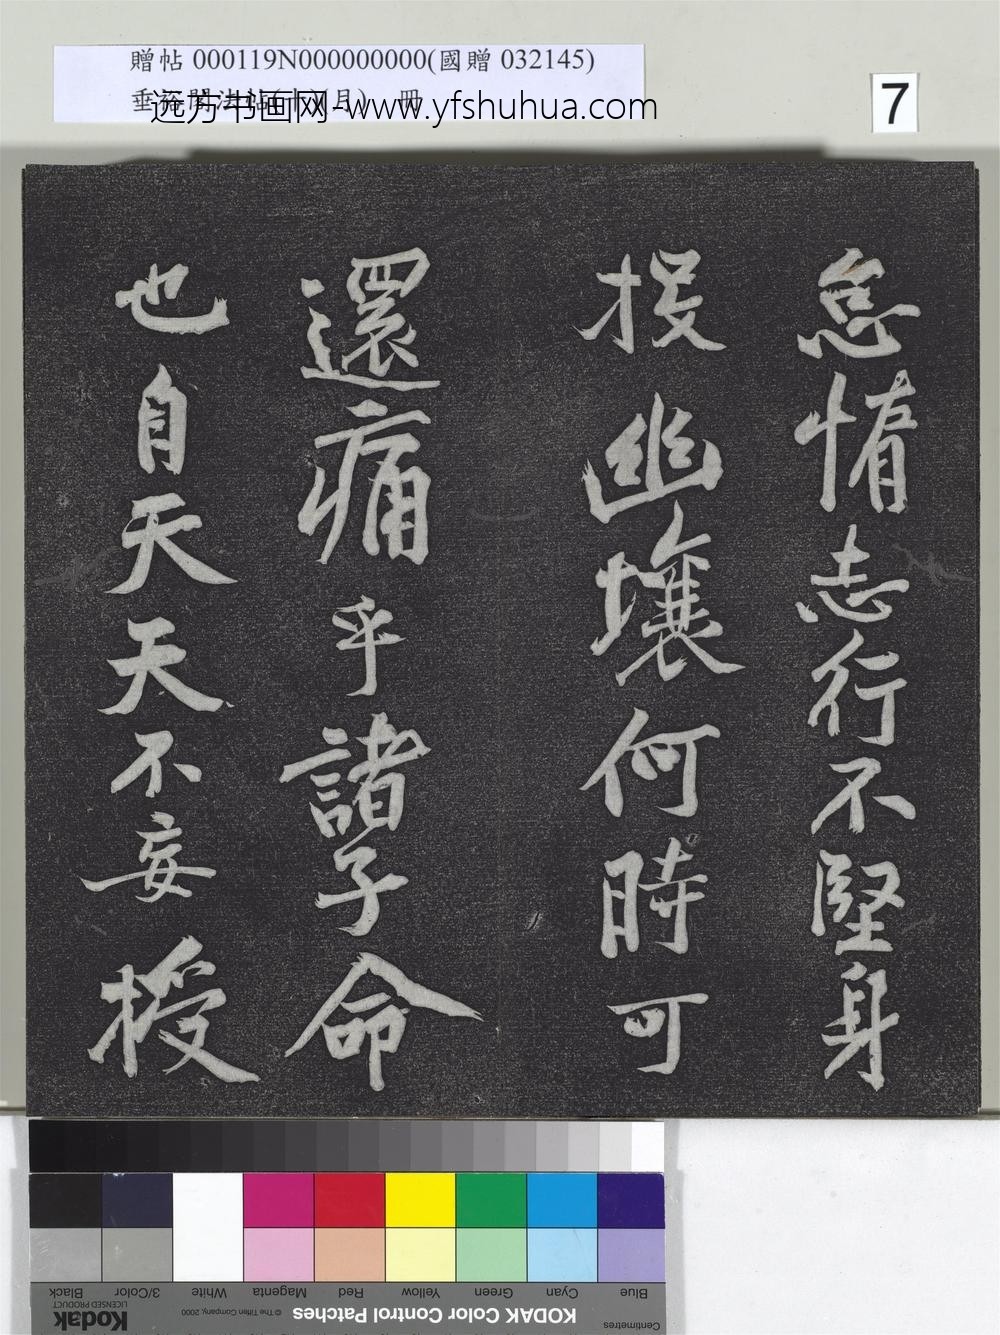 贈帖 000119N000000000(國贈 032145)
远方书画网-www.yfshuhua.com
7
怠惰志行不堅身
投幽壤何時可
還痛乎諸子命
也自天天不妄授
Black
3/Color
White
Magenta
Red
Yellow
Green
Cyan
Blue
Kodak
LICENSED PRODUCT
© The Tiffen Company, 2000
KODAK Color Control Patches
Centimetres